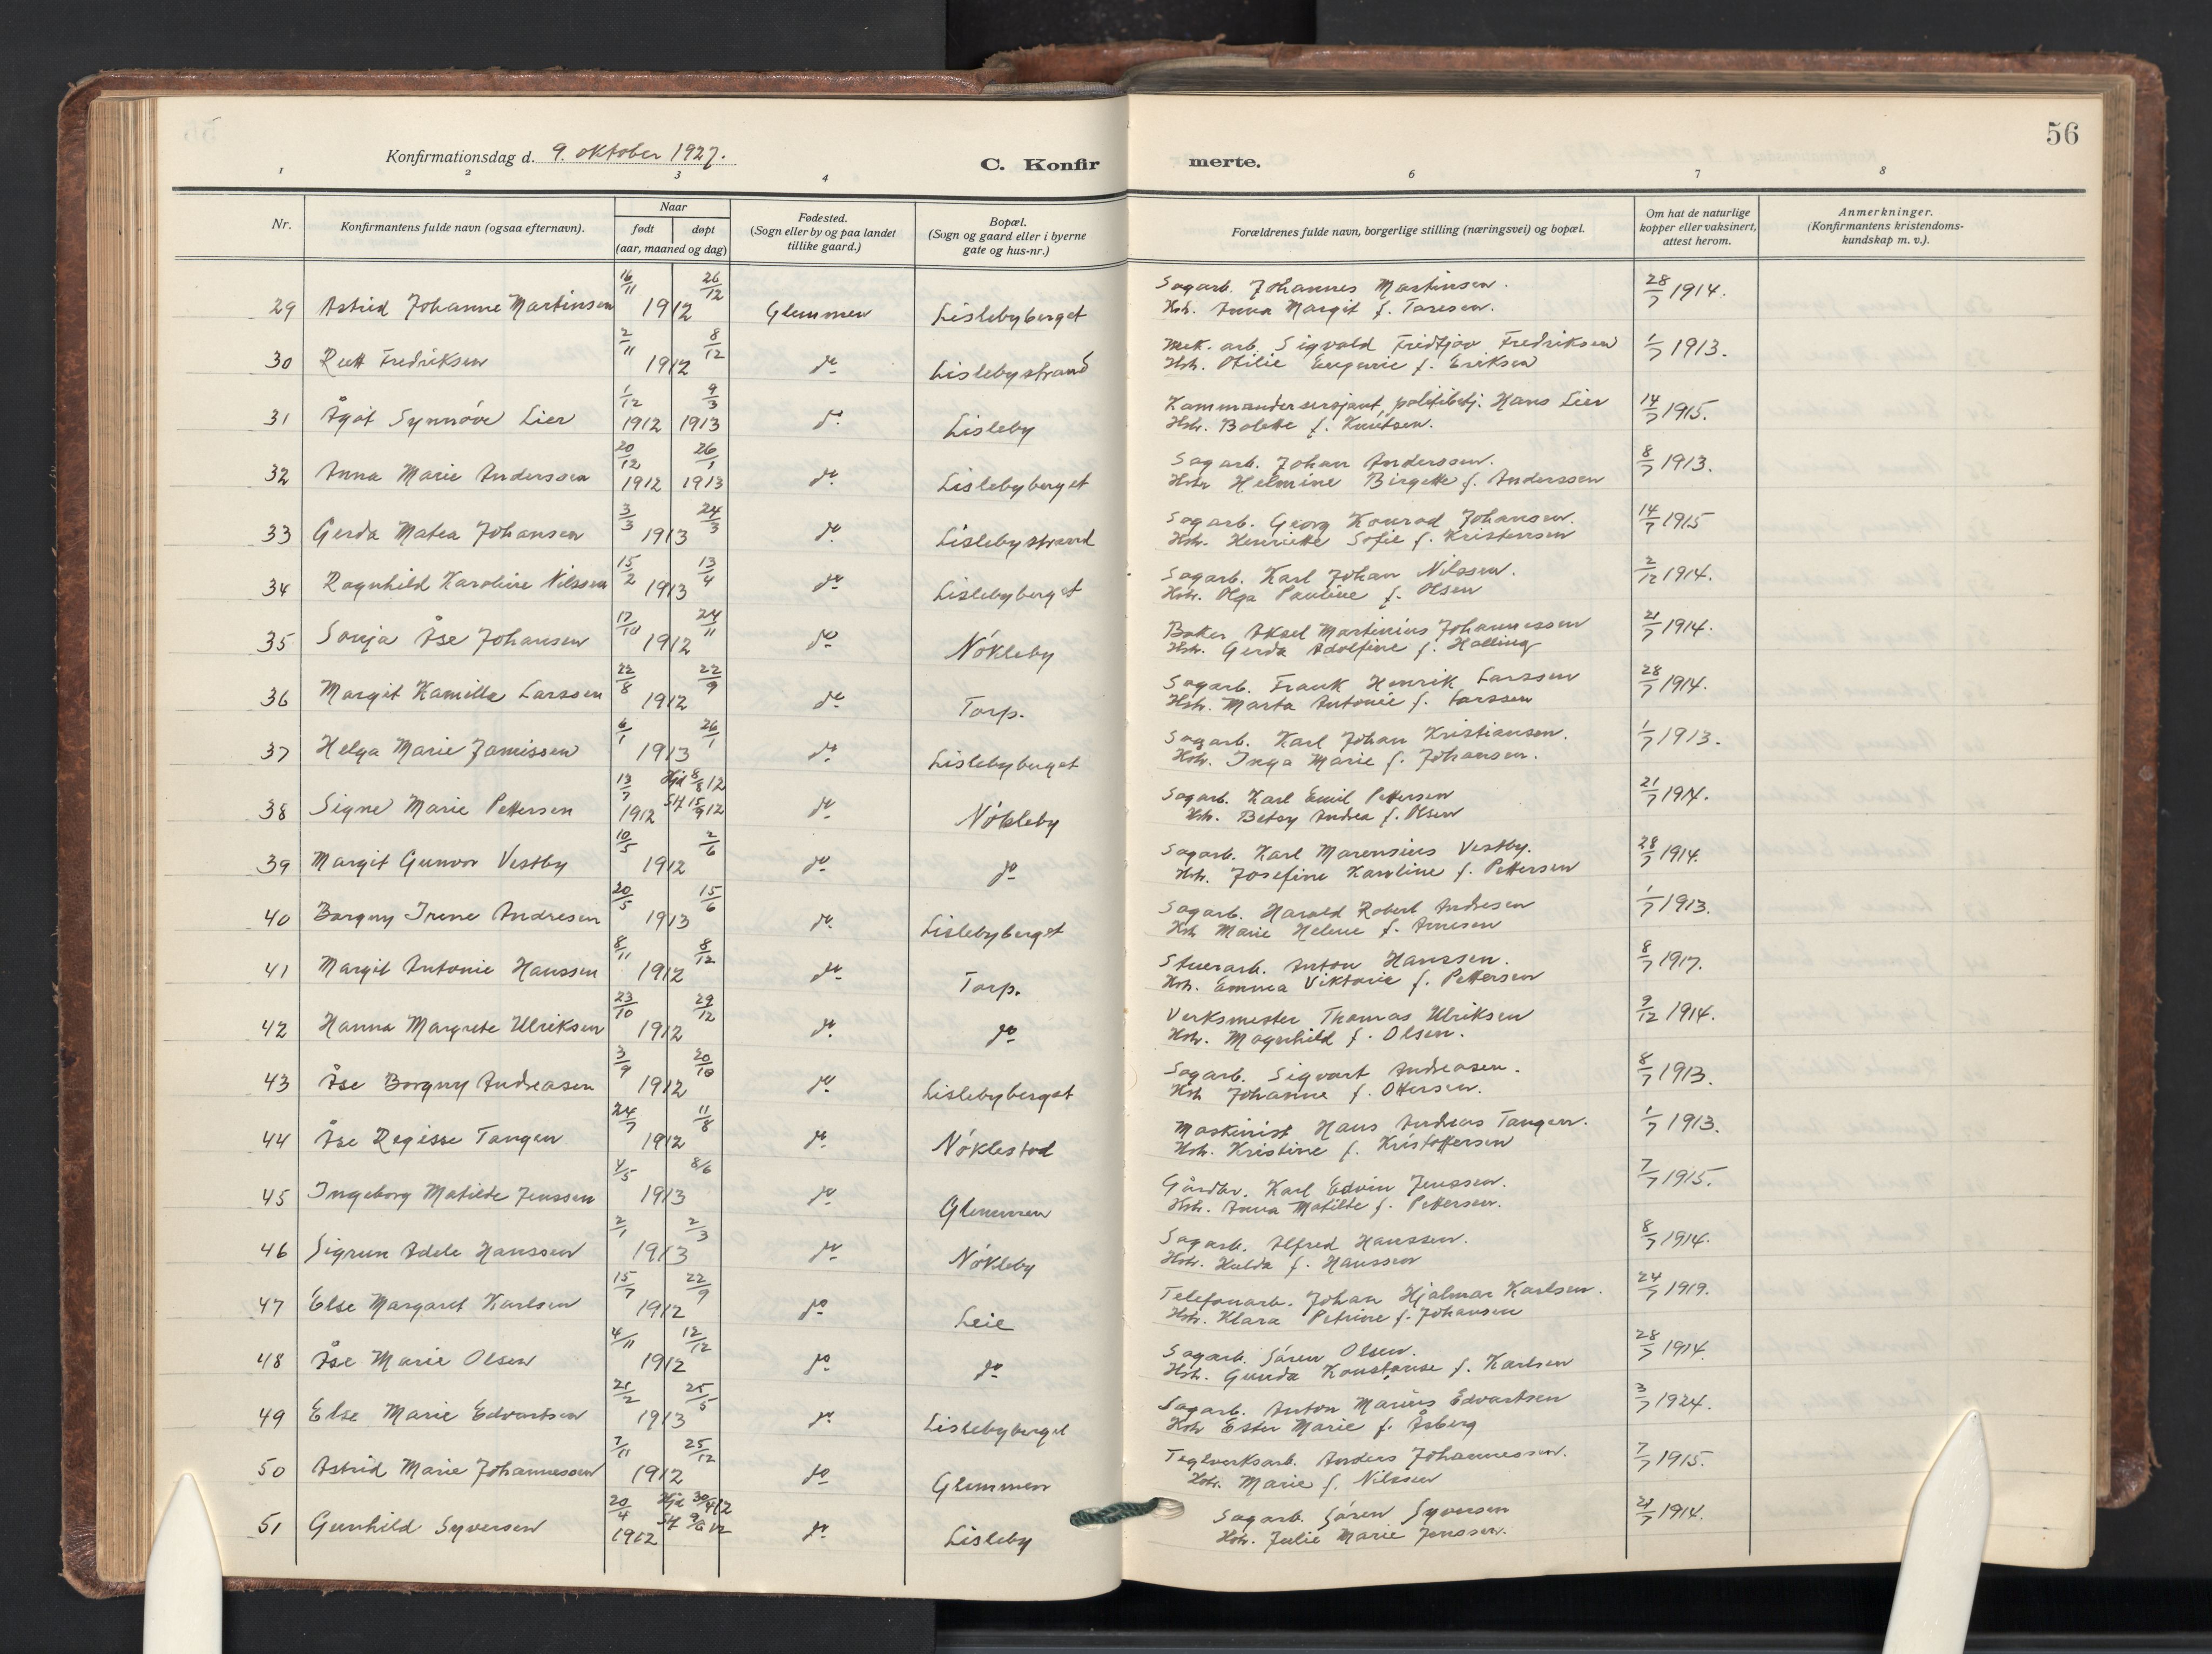 56
Konfirmationsdag d. 9. oktober 1927.
C. Konfirmerte.
1 2 3 4 6 7 8
Nr.
Konfirmantens fulde navn (ogsaa efternavn).
Naar
født døpt
(aar, maaned og dag)
Fødested.
(Sogn eller by og paa landet
tillike gaard.)
Bopæl.
(Sogn og gaard eller i byerne
gate og hus-nr.)
Forældrenes fulde navn, borgerlige stilling (næringsvei) og bopæl.
Om hat de naturlige
kopper eller vaksinert,
attest herom.
Anmerkninger.
(Konfirmantens kristendoms-
kundskap m. v.).
29 Astrid Johanne Martinsen 16/11 26/12 1912 Glemmen Lislebyberget Sagarb. Johannes Martinsen. 28/7 1914.
Hstr. Anna Margit f. Taresen.
30 Rutt Fredriksen 2/11 8/12 1912 do Lislebystrand Mek. arb. Sigvald Fridtjov Fredriksen 1/7 1913.
Hstr. Otilie Eugenie f. Eriksen
31 Ågot Synnöve Lier 1/12 1912 9/3 1913 do Lisleby Kommandersersjant, politibetj. Hans Lier 14/7 1915.
Hstr. Bolette f. Knutsen.
32 Anna Marie Anderssen 20/12 1912 26/1 1913 do Lislebyberget Sagarb. Johan Anderssen. 8/7 1913.
Hstr Helmine Birgette f. Anderssen
33 Gerda Matea Johansen 3/3 24/3 1913 do Lislebystrand Sagarb. Georg Konrad Johansen. 14/7 1915
Hstr. Henriette Sofie f. Kristensen
34 Ragnhild Karoline Nilssen 15/2 13/4 1913 do Lislebyberget Sagarb. Karl Johan Nilssen. 2/12 1914.
Hstr. Olga Pauline f. Olsen
35 Sonja Åse Johansen 17/10 24/11 1912 do Nökleby Baker Aksel Martinius Johannessen 21/7 1914.
Hstr. Gerda Adolfine f. Halling
36 Margit Kamilla Larssen 22/8 22/9 1912 do Torp. Sagarb. Frank Henrik Larssen 28/7 1914.
Hstr. Marta Antonie f. Larssen
37 Helga Marie Jamissen 6/1 26/1 1913 do Lislebyberget Sagarb. Karl Johan Kristiansen. 1/7 1913.
Hstr. Inga Marie f. Johansen.
38 Signe Marie Pettersen 13/7 1912 Hjd 8/8 12 Stf 15/9 12 do Nökleby Sagarb. Karl Emil Pettersen 21/7 1914.
Hstr. Betsy Andrea f. Olsen
39 Margit Gunvor Vestby 10/5 2/6 1912 do do Sagarb. Karl Marensius Vestby. 28/7 1914.
Hstr. Josefine Karoline f. Pettersen
40 Borgny Irene Andresen 20/5 15/6 1913 do Lislebyberget Sagarb. Harald Robert Andresen 1/7 1913.
Hstr Marie Helene f. Arnesen
41 Margit Antonie Hanssen 8/11 8/12 1912 do Torp. Stuerarb. Anton Hanssen. 8/7 1917.
Hstr. Emma Viktorie f. Pettersen
42 Hanna Margrete Ulriksen 23/10 29/12 1912 do do Verksmester Thomas Ulriksen 9/12 1914.
Hstr. Magnhild f. Olsen.
43 Åse Borgny Andreasen 3/9 20/10 1912 do Lislebyberget Sagarb. Sigvart Andreasen. 8/7 1913.
Hstr Johanne f. Ottersen.
44 Åse Regisse Tangen 24/7 11/8 1912 do Nöklestad Maskinist Hans Andreas Tangen. 1/7 1913.
Hstr. Kristine f. Kristoffersen
45 Ingeborg Matilde Jenssen 4/5 8/6 1913 do Glemmen Gårdbr. Karl Edvin Jenssen. 7/7 1915.
Hstr. Anna Matilde f. Pettersen.
46 Sigrun Adele Hanssen 2/1 2/3 1913 do Nökleby Sagarb. Alfred Hanssen. 8/7 1914.
Hstr. Hulda f. Hanssen
47 Else Margaret Karlsen 15/7 22/9 1912 do Leie Telefonarb. Johan Hjalmar Karlsen. 24/7 1919.
Hstr. Klara Petrine f. Johansen
48 Åse Marie Olsen 4/11 12/12 1912 do do Sagarb. Sören Olsen. 28/7 1914.
Hstr. Gunda Konstanse f. Karlsen
49 Else Marie Edvartsen 21/2 25/5 1913 do Lislebyberget Sagarb. Anton Marius Edvartsen 3/7 1924.
Hstr Ester Marie f. Åsberg
50 Astrid Marie Johannessen 7/11 25/12 1912 do Glemmen Teglverksarb. Anders Johannessen. 7/7 1915.
Hstr. Marie f. Nilssen
51 Gunhild Syversen 20/4 1912 Hjd 30/4 12 Stf 9/6 12 do Lisleby Sagarb. Sören Syversen 21/7 1914.
Hstr. Julie Marie Jenssen.